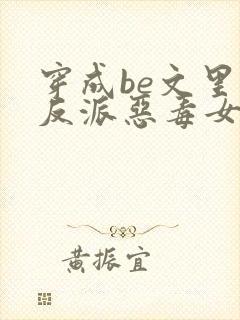 穿成be文里
反派惡毒女
黄振宜